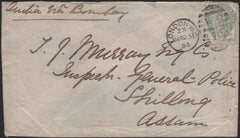 India via Bombay
LONDON
T. J. Murray Esq
Inspr. General Police
Shillong
Assam